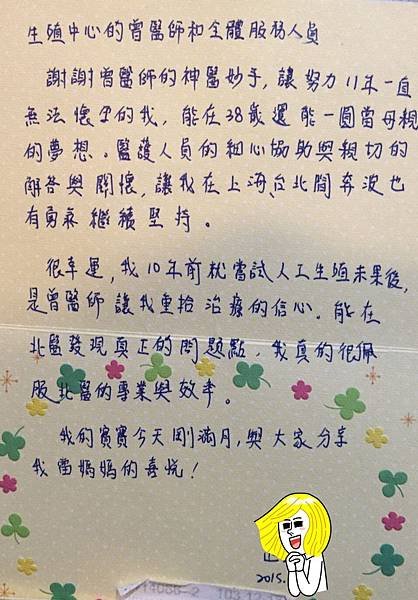 生殖中心的曾醫師和全體服務人員
謝謝曾醫師的神醫妙手，讓努力11年一直
無法懷孕的我，能在38歲還能一圓當母親
的夢想。醫護人員的細心協助與親切的
解答與關懷，讓我在上海、台北間奔波也
有勇氣繼續堅持。
很幸運，我10年前就嘗試人工生殖未果後，
是曾醫師讓我重拾治療的信心。能在
北醫發現真正的問題點，我真的很佩
服北醫的專業與效率。
我的寶寶今天剛滿月，與大家分享
我當媽媽的喜悅！
2015.